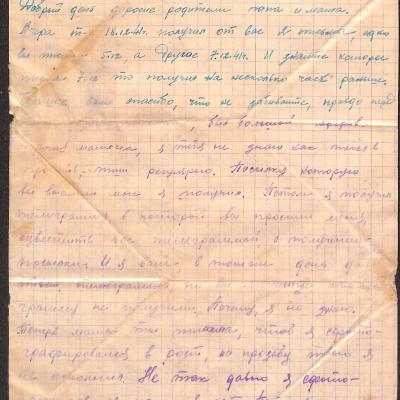 Добрый день дорогие родители папа и мама.
Вчера т.е. 16.12.41г. получил от вас 2 письма, одно
вы писали 5.12, а другое 7.12.41г. И знаете которое
писали 7.12 то получил на несколько часов раньше.
вам спасибо, что не забываете, правда перед
, был большой перерыв.
мамочка, я тебя не знаю как теперь
регулярно. Посылку которую
вы выслали мне я получил. Потом я получил
телеграмму в которой вы просили меня
известить вас телеграммой о получении
посылки. И я вам в тот же день дал
ответ телеграммой, но вы
грамму не получили. Почему, я не знаю.
Теперь мама ты писала, чтоб я сфото-
графировался в рост, но просьбу твою я
не исполнил. Не так давно я сфото-